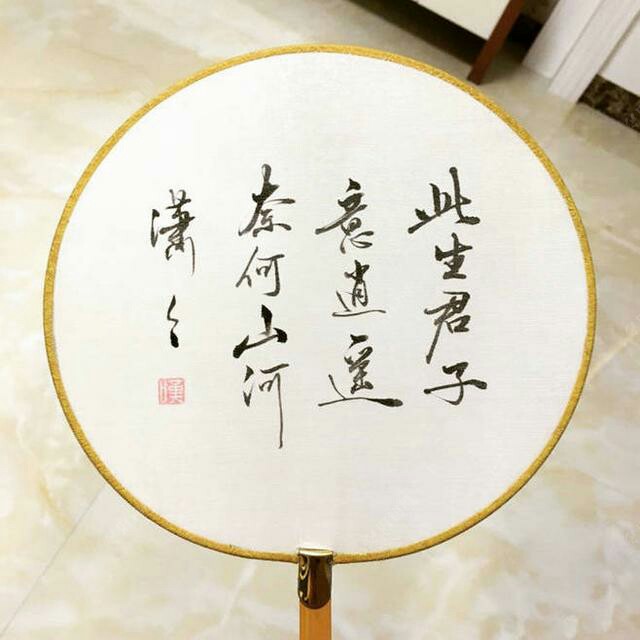 此生君子
意逍遥
奈何山河
潇々